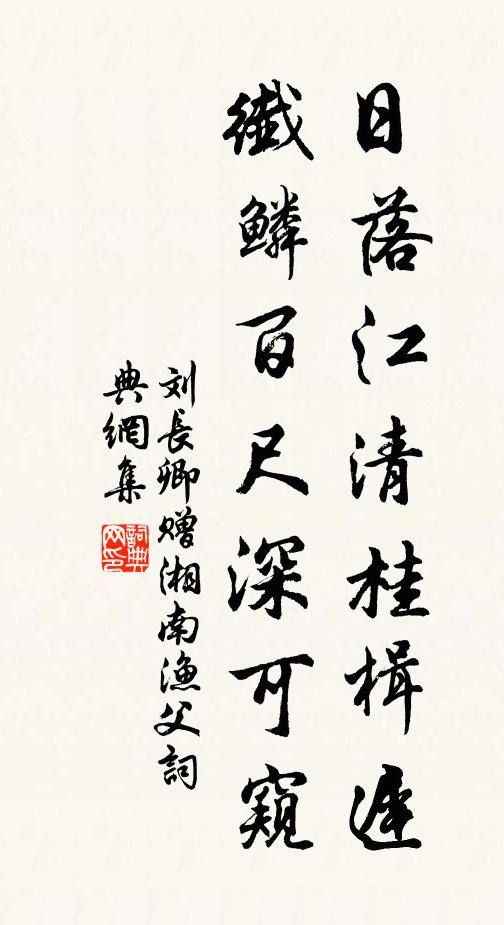 日落江清桂楫遲
纖鱗百尺深可窺
刘長卿赠湘南漁父詞
典網集
詞典网印